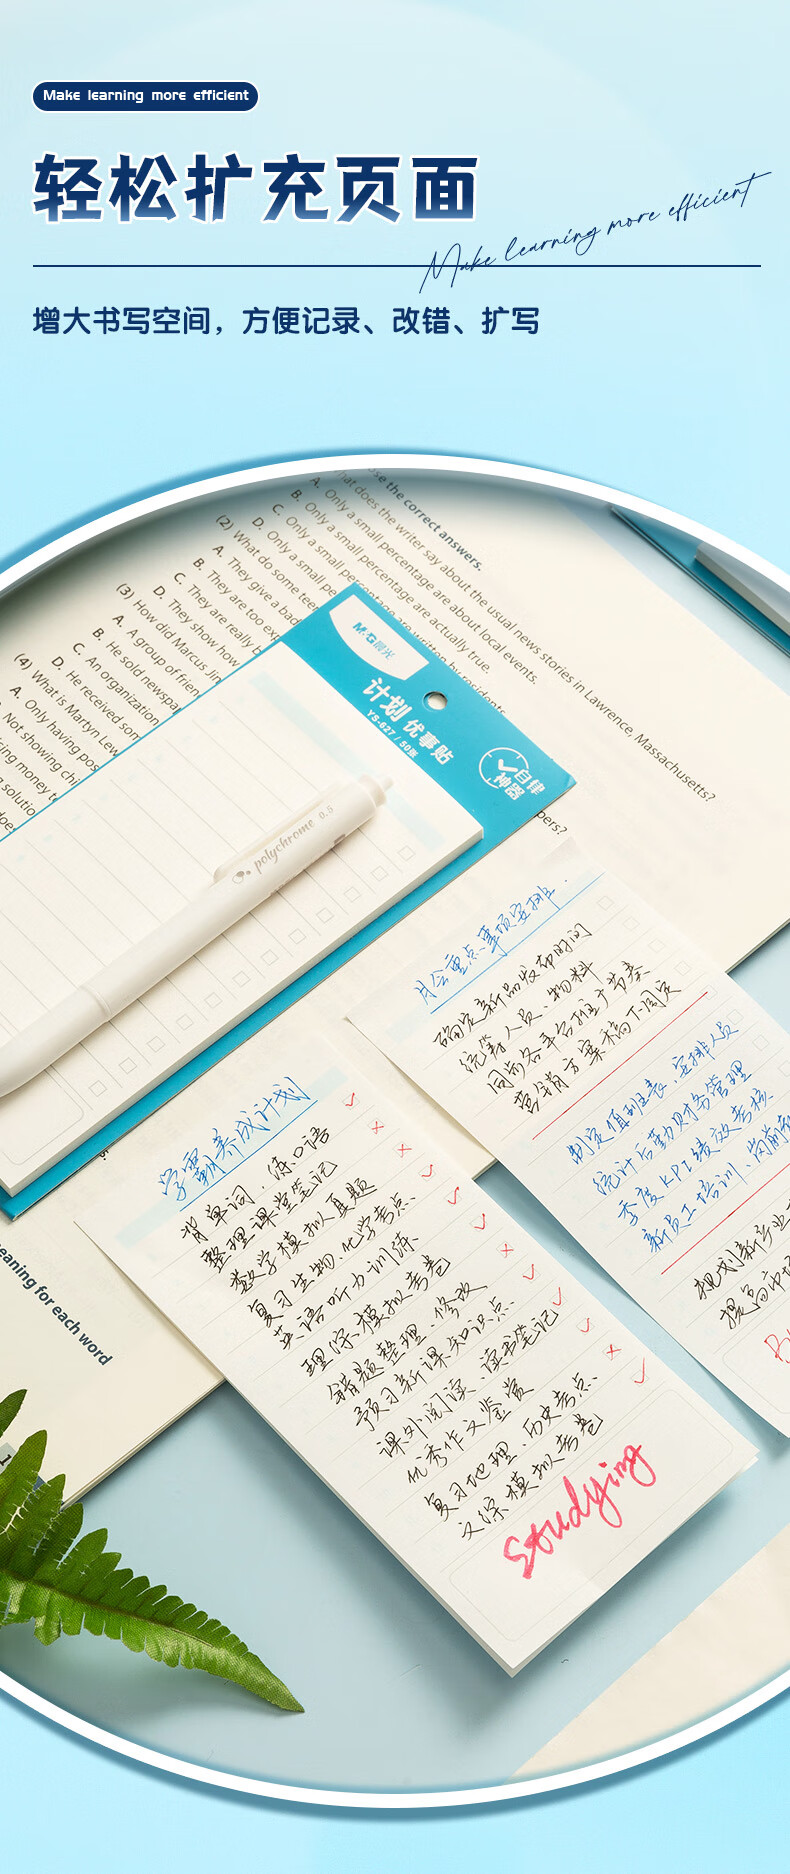 Make learning more efficient
轻松扩充页面
Make learning more efficient
增大书写空间，方便记录、改错、扩写
se the correct answers.
hat does the writer say about the usual news stories in Lawrence, Massachusetts?
A. Only a small percentage are about local events.
B. Only a small percentage are actually true.
C. Only a small percentage are written by residents
D. Only a small pe
(2) What do some teen
A. They give a bad
B. They are too exp
C. They are really b
D. They show how
(3) How did Marcus Jin
A. A group of frien
B. He sold newspa
C. An organization
D. He received som
(4) What is Martyn Lew
A. Only having pos
Not showing chi
ing money t
g solutio
pers?
M&G晨光
计划优事贴
YS-627 / 50张
自律
神器
polychrome 0.5
月会重点事项安排
确定新品发布时间
统筹人员、物料
同步各平台推广节奏
营销方案稿下周定
制定值班表、安排人员
统计后勤财务管理
季度KPI绩效考核
新员工培训、岗前
规划新产业
提高市场
学霸养成计划
背单词、练口语
整理课堂笔记
数学模拟真题
复习生物、化学考点
英语听力训练
理综模拟考卷
错题整理、修改
预习新课知识点
课外阅读、读书笔记
优秀作文鉴赏
复习地理、历史考点
文综模拟考卷
Studying
eaning for each word
1